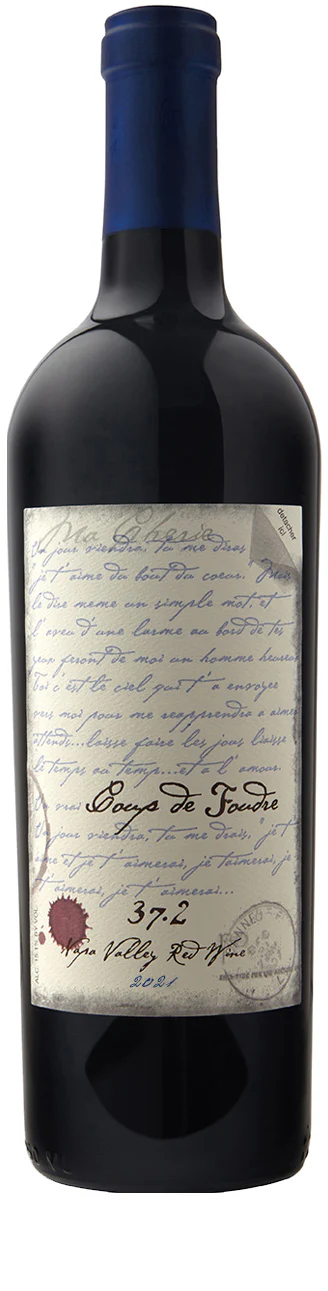 Ma Cherie
detacher
ici
Un jour viendra, tu me diras
"je t'aime du bout du coeur. Mais
le dire meme un simple mot, et
l'aveu d'une larme au bord de tes
yeux feront de moi un homme heureux
Toi c'est le ciel qui t'a envoyee
vers moi pour me reapprendre a aimer
attends...laisse faire les jours laisse
le temps au temps...et a l'amour.
vrai Coup de Foudre
Un jour viendra, tu me diras, "je t'
aime et je t'aimerai, je t'aimerai, je
t'aimerai, je t'aimerai...
37.2
Napa Valley Red Wine
2021